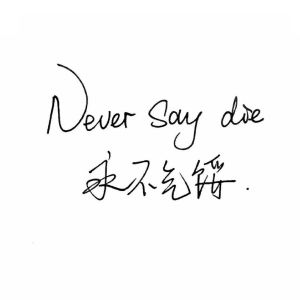 Never say die
永不气馁.